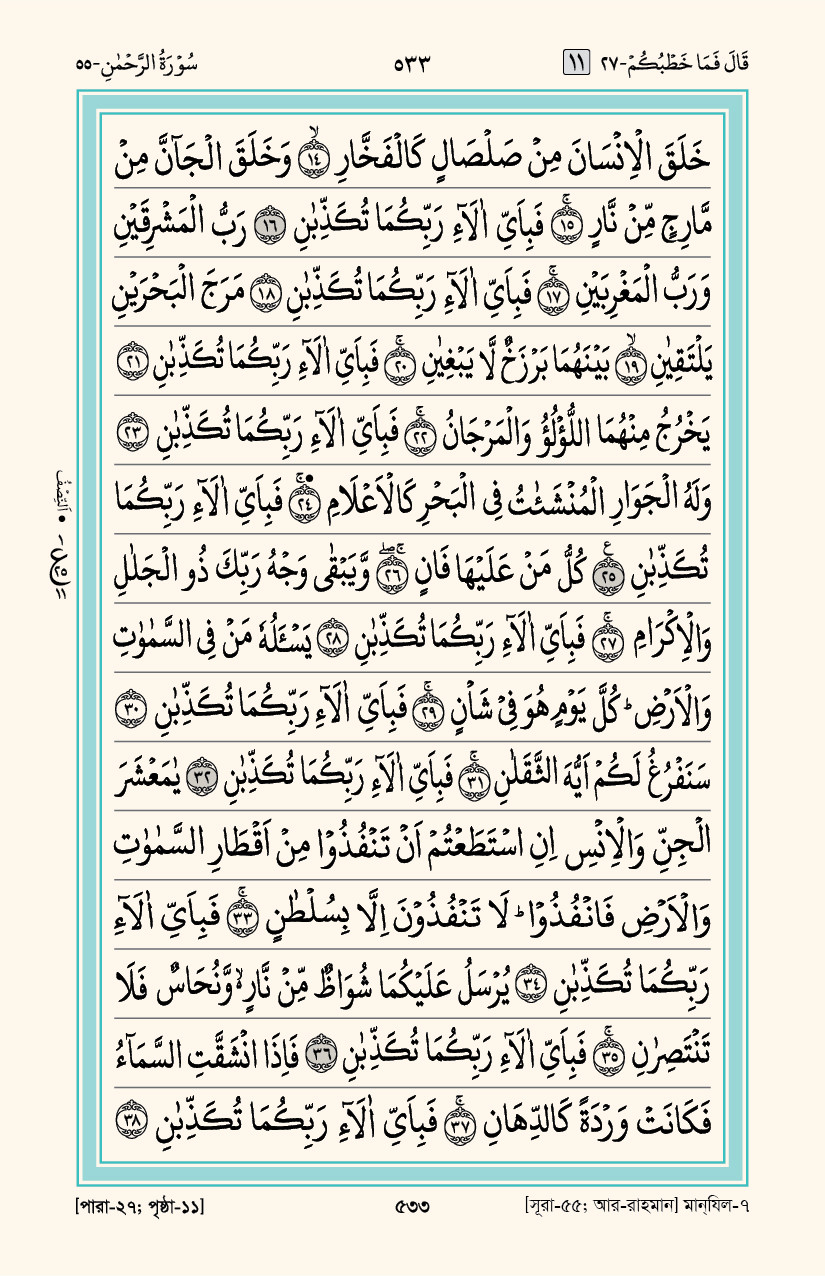 قَالَ فَمَا خَطْبُكُمْ-٢٧ ١١ ٥٣٣ سُوْرَةُ الرَّحْمٰنِ-٥٥
خَلَقَ الْاِنْسَانَ مِنْ صَلْصَالٍ كَالْفَخَّارِ ۙ‏﴿١٤﴾ وَخَلَقَ الْجَآنَّ مِنْ
مَّارِجٍ مِّنْ نَّارٍ ۚ﴿١٥﴾ فَبِاَيِّ اٰلَآءِ رَبِّكُمَا تُكَذِّبٰنِ ﴿١٦﴾ رَبُّ الْمَشْرِقَيْنِ
وَرَبُّ الْمَغْرِبَيْنِ ۚ﴿١٧﴾ فَبِاَيِّ اٰلَآءِ رَبِّكُمَا تُكَذِّبٰنِ ﴿١٨﴾ مَرَجَ الْبَحْرَيْنِ
يَلْتَقِيٰنِ ۙ﴿١٩﴾ بَيْنَهُمَا بَرْزَخٌ لَّا يَبْغِيٰنِ ۚ﴿٢٠﴾ فَبِاَيِّ اٰلَآءِ رَبِّكُمَا تُكَذِّبٰنِ ﴿٢١﴾
يَخْرُجُ مِنْهُمَا اللُّؤْلُؤُ وَالْمَرْجَانُ ۚ﴿٢٢﴾ فَبِاَيِّ اٰلَآءِ رَبِّكُمَا تُكَذِّبٰنِ ﴿٢٣﴾
وَلَهُ الْجَوَارِ الْمُنْشَئٰتُ فِى الْبَحْرِ كَالْاَعْلَامِ ۚ﴿٢٤﴾ فَبِاَيِّ اٰلَآءِ رَبِّكُمَا
اَلنِّصْفُ
تُكَذِّبٰنِ ﴿٢٥﴾ ع كُلُّ مَنْ عَلَيْهَا فَانٍ ۚۖ﴿٢٦﴾ وَّيَبْقٰى وَجْهُ رَبِّكَ ذُو الْجَلٰلِ
وَالْاِكْرَامِ ۚ﴿٢٧﴾ فَبِاَيِّ اٰلَآءِ رَبِّكُمَا تُكَذِّبٰنِ ﴿٢٨﴾ يَسْـَٔلُهٗ مَنْ فِى السَّمٰوٰتِ
وَالْاَرْضِ ؕ كُلَّ يَوْمٍ هُوَ فِيْ شَاْنٍ ۚ﴿٢٩﴾ فَبِاَيِّ اٰلَآءِ رَبِّكُمَا تُكَذِّبٰنِ ﴿٣٠﴾
سَنَفْرُغُ لَكُمْ اَيُّهَ الثَّقَلٰنِ ۚ﴿٣١﴾ فَبِاَيِّ اٰلَآءِ رَبِّكُمَا تُكَذِّبٰنِ ﴿٣٢﴾ يٰمَعْشَرَ
الْجِنِّ وَالْاِنْسِ اِنِ اسْتَطَعْتُمْ اَنْ تَنْفُذُوْا مِنْ اَقْطَارِ السَّمٰوٰتِ
وَالْاَرْضِ فَانْفُذُوْا ؕ لَا تَنْفُذُوْنَ اِلَّا بِسُلْطٰنٍ ۚ﴿٣٣﴾ فَبِاَيِّ اٰلَآءِ
رَبِّكُمَا تُكَذِّبٰنِ ﴿٣٤﴾ يُرْسَلُ عَلَيْكُمَا شُوَاظٌ مِّنْ نَّارٍ ۙ وَّنُحَاسٌ فَلَا
تَنْتَصِرٰنِ ۚ﴿٣٥﴾ فَبِاَيِّ اٰلَآءِ رَبِّكُمَا تُكَذِّبٰنِ ﴿٣٦﴾ فَاِذَا انْشَقَّتِ السَّمَآءُ
فَكَانَتْ وَرْدَةً كَالدِّهَانِ ۚ﴿٣٧﴾ فَبِاَيِّ اٰلَآءِ رَبِّكُمَا تُكَذِّبٰنِ ﴿٣٨﴾
[পারা-২৭; পৃষ্ঠা-১১] ৫৩৩ [সূরা-৫৫; আর-রাহমান] মান্‌যিল-৭